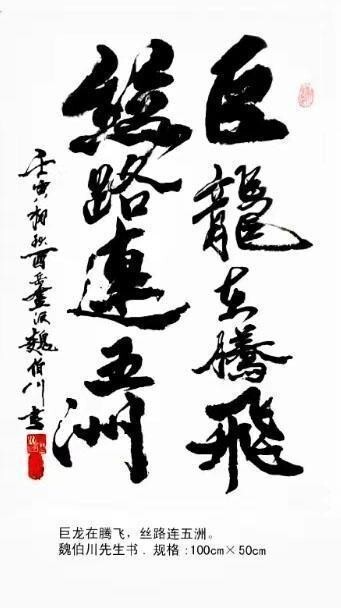 巨龍在騰飛
絲路連五洲
壬寅初秋 魏伯川書
巨龙在腾飞，丝路连五洲。
魏伯川先生书 . 规格 :100cm× 50cm